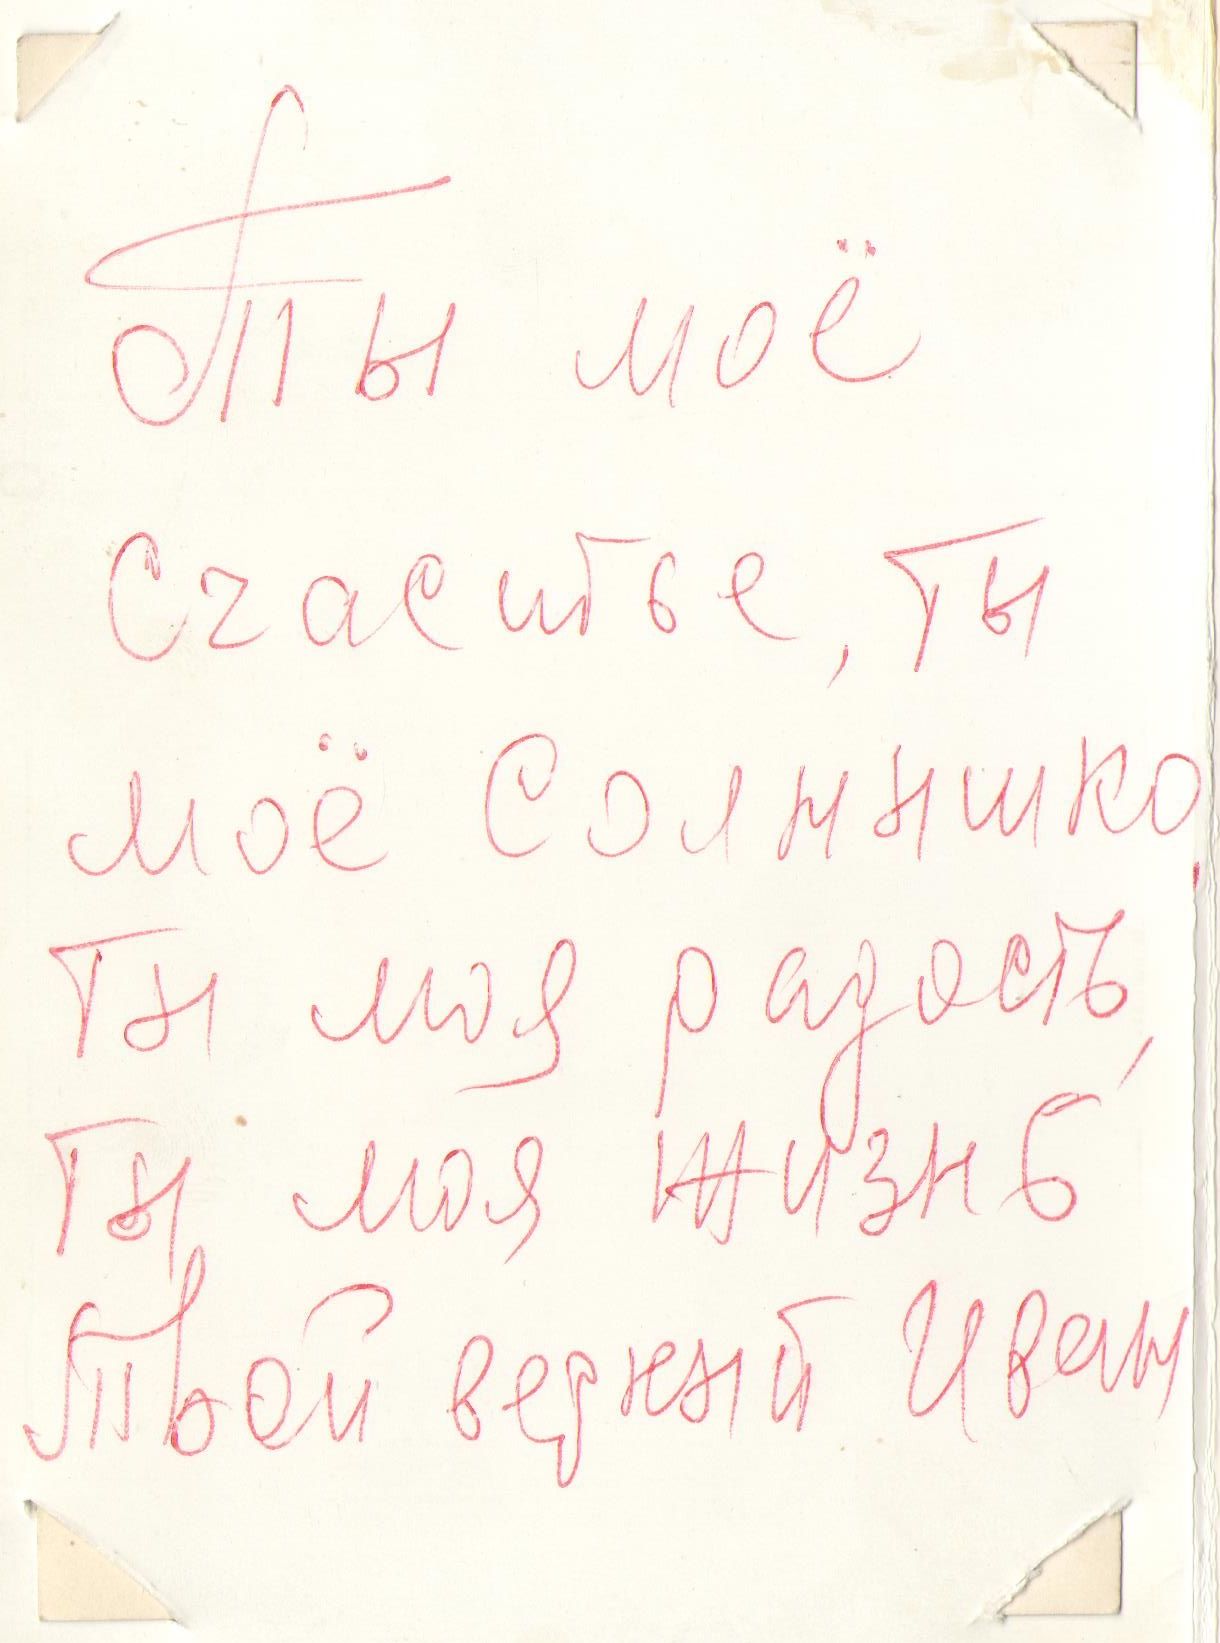 Ты моё
Счастье, ты
моё Солнышко,
ты моя радость,
ты моя жизнь
Твой верный Иван